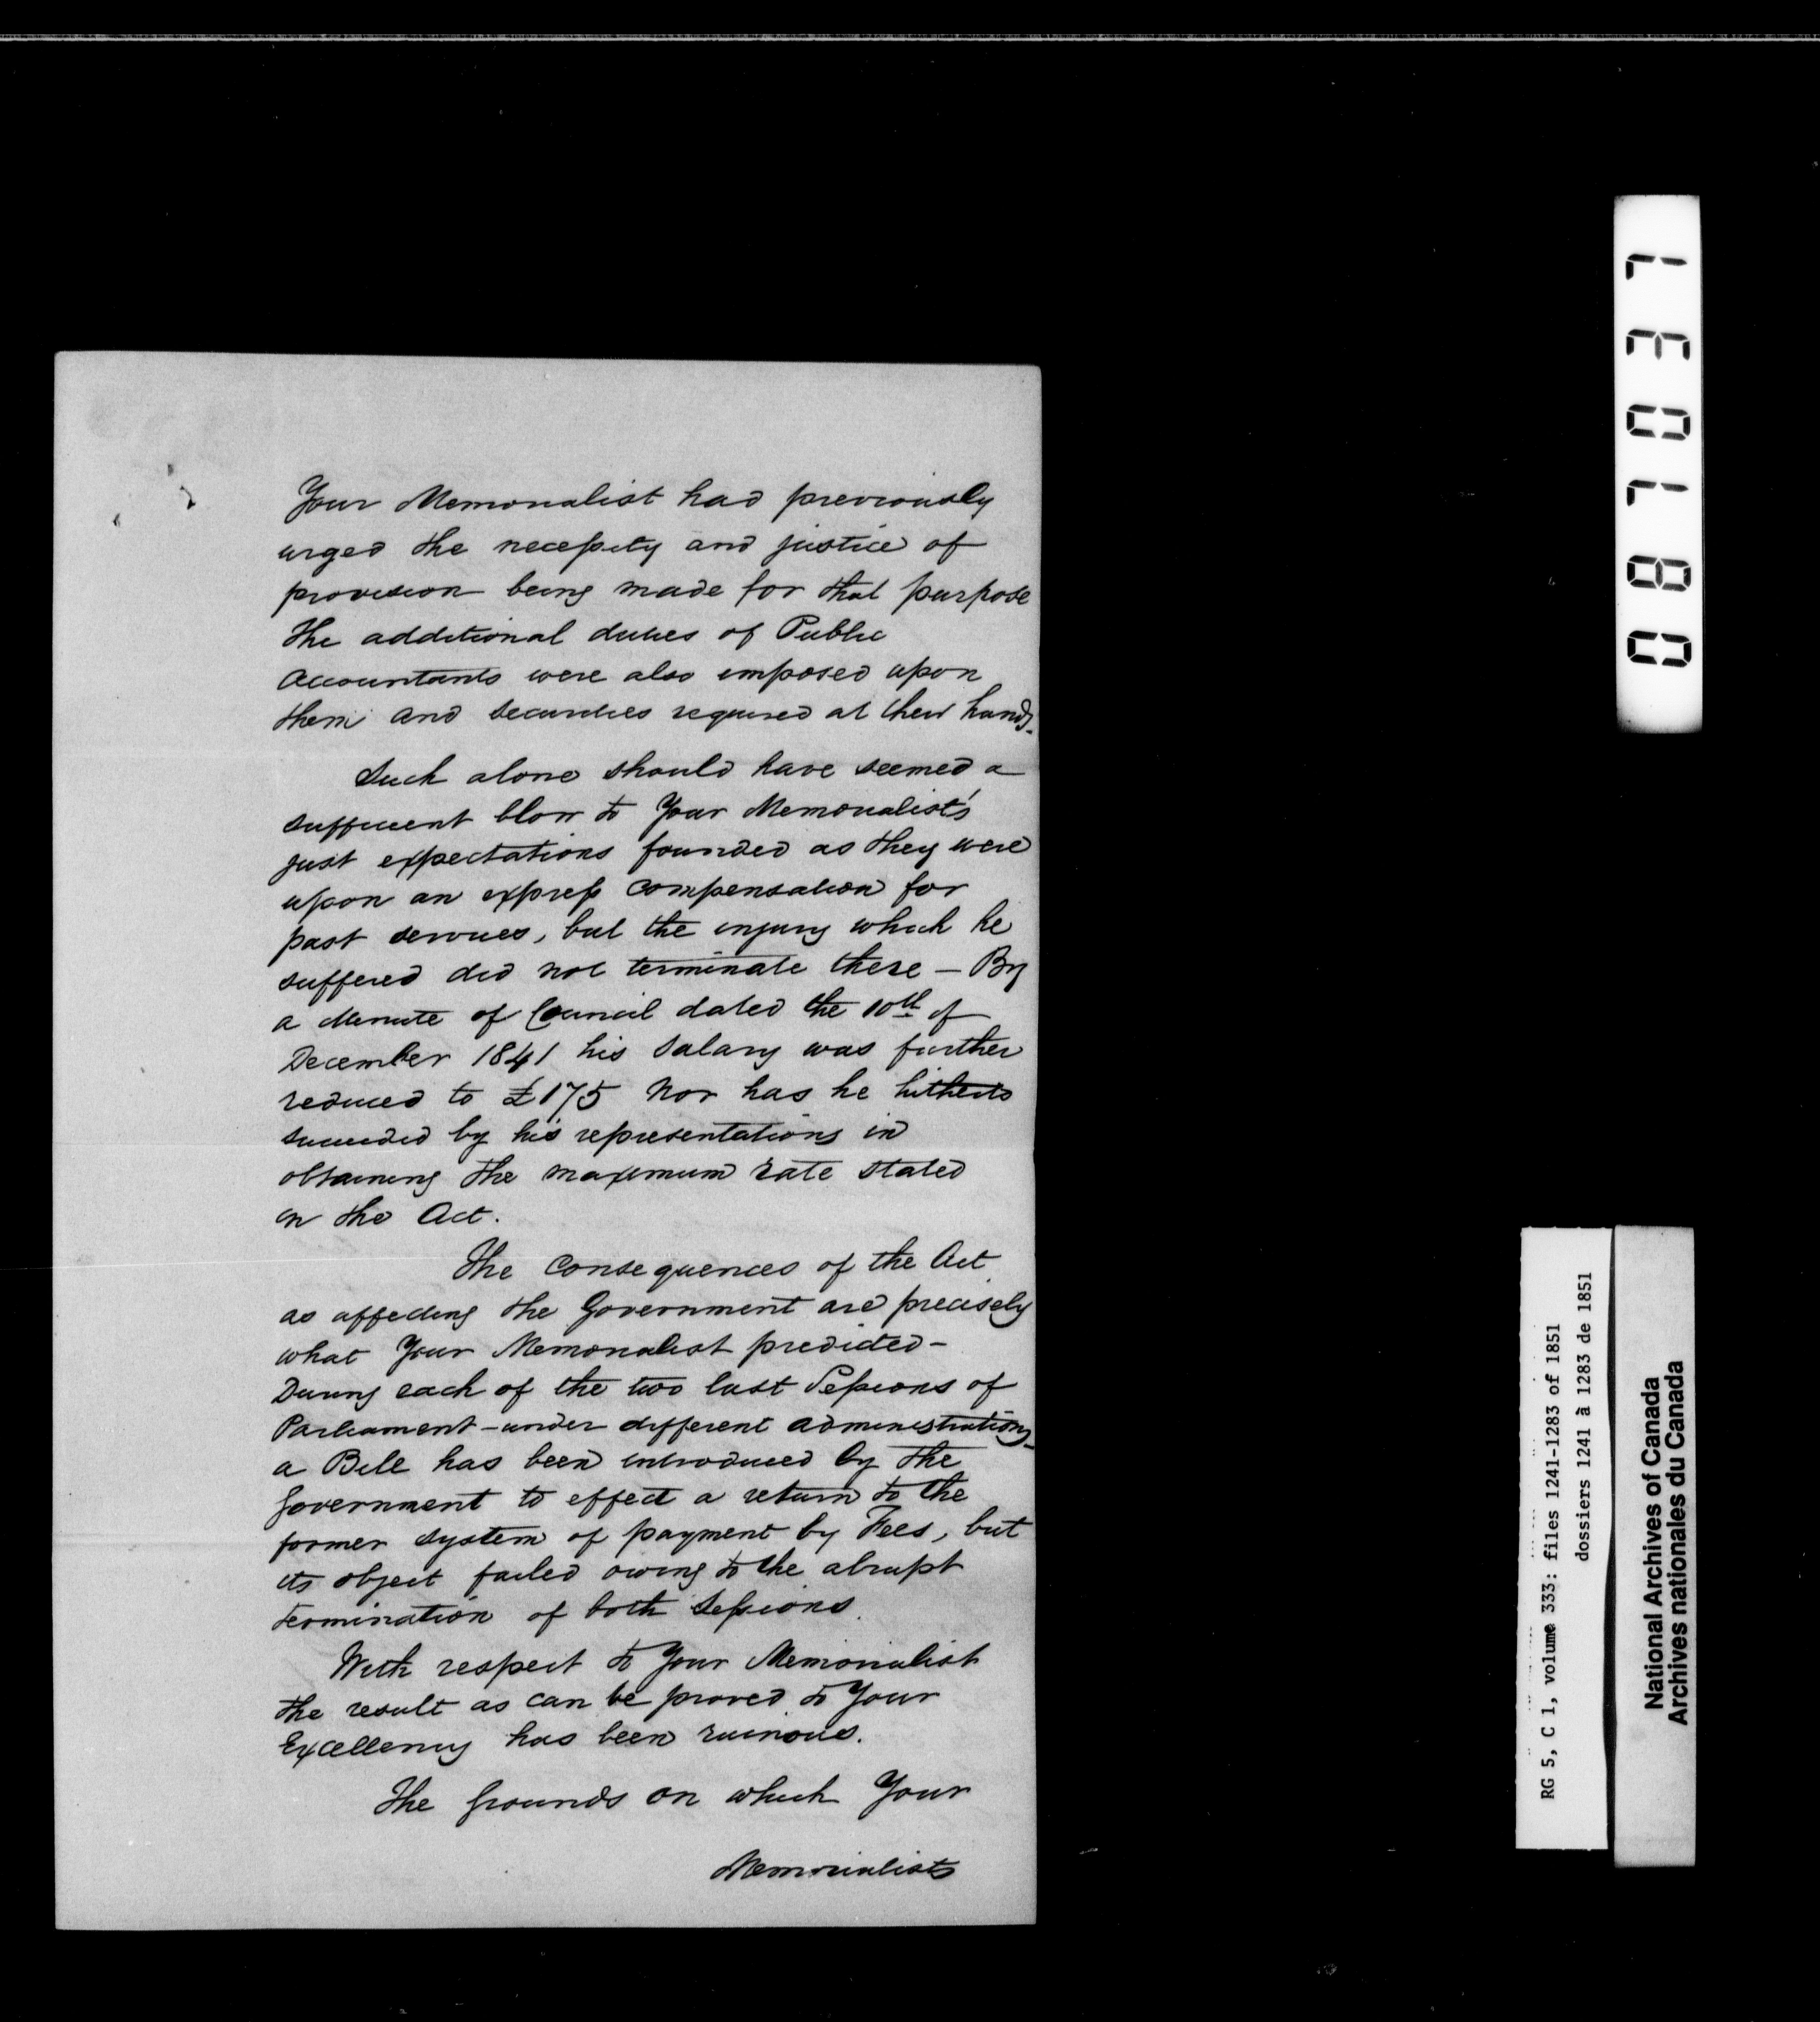 Your Memorialist had previously
urged the necessity and justice of
provision being made for that purpose
The additional duties of Public
Accountants were also imposed upon
them and securities required at their hands.
Such alone should have seemed a
sufficient blow to Your Memorialist's
just expectations founded as they were
upon an express compensation for
past services, but the injury which he
suffered did not terminate there — By
a Minute of Council dated the 10th of
December 1841 his salary was further
reduced to £175 nor has he hitherto
succeeded by his representations in
obtaining the maximum rate stated
in the Act.
The Consequences of the Act
as affecting the Government are precisely
what Your Memorialist predicted —
During each of the two last Sessions of
Parliament — under different administrations —
a Bill has been introduced by the
Government to effect a return to the
former system of payment by Fees, but
its object failed owing to the abrupt
termination of both Sessions.
With respect to Your Memorialist
the result as can be proved to Your
Excellency has been ruinous.
The grounds on which Your
Memorialists
087037
RG 5, C 1, volume 333: files 1241-1283 of 1851
dossiers 1241 à 1283 de 1851
National Archives of Canada
Archives nationales du Canada